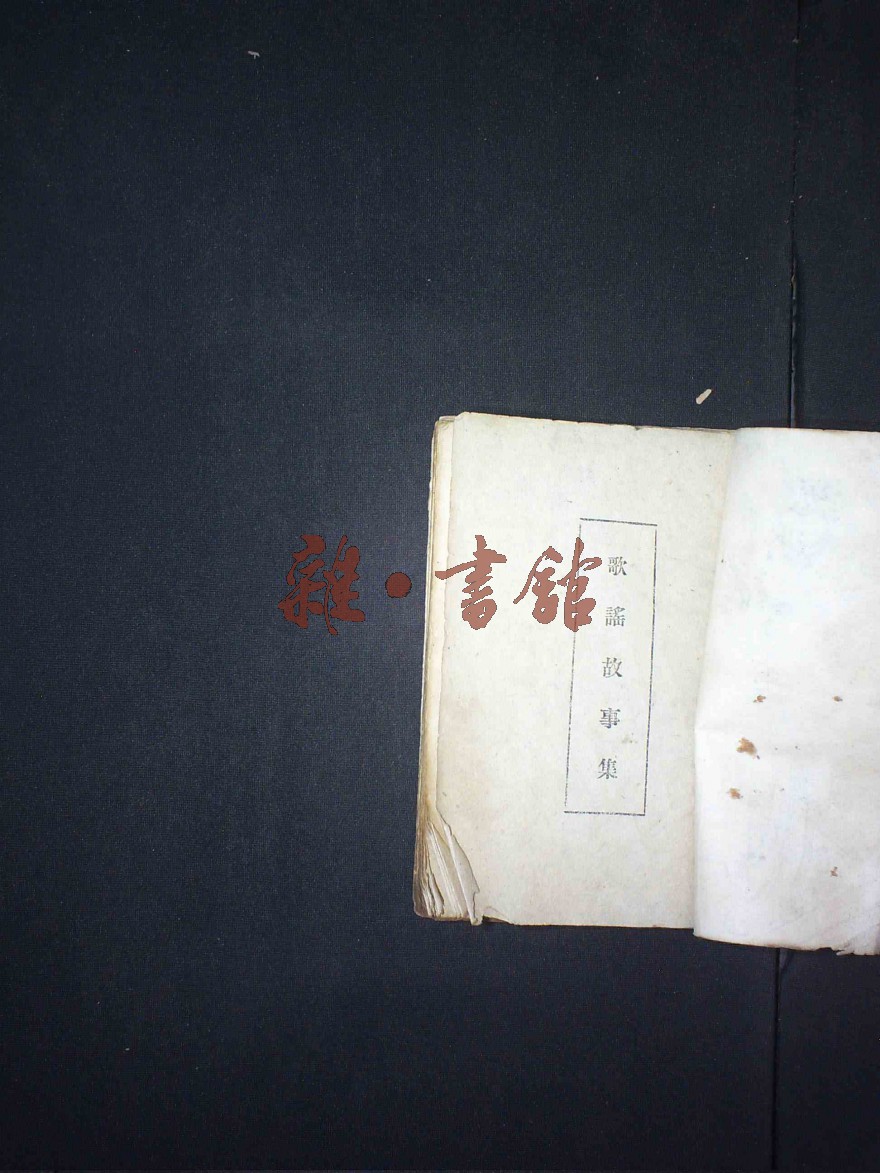 歌謠故事集
雜·書館